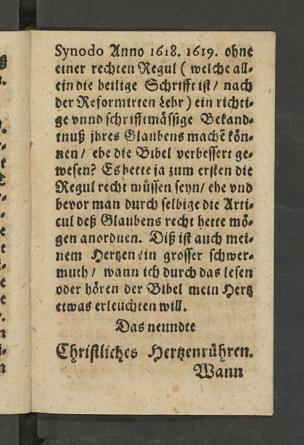 Synodo Anno 1618. 1619. ohne
einer rechten Regul (welche all-
ein die heilige Schrifft ist / nach
der Reformirten Lehr) ein richti-
ge vnnd schrifftmässige Bekand-
tnuß jhres Glaubens machē kön-
nen / ehe die Bibel verbessert ge-
wesen? Es hette ja zum ersten die
Regul recht müssen seyn / ehe vnd
bevor man durch selbige die Arti-
cul deß Glaubens recht hette mö-
gen anordnen. Diß ist auch mei-
nem Hertzen ein grosser schwer-
muth / wann ich durch das lesen
oder hören der Bibel mein Hertz
etwas erleuchten will.
Das neundte
Christliches Hertzenrühren.
Wann